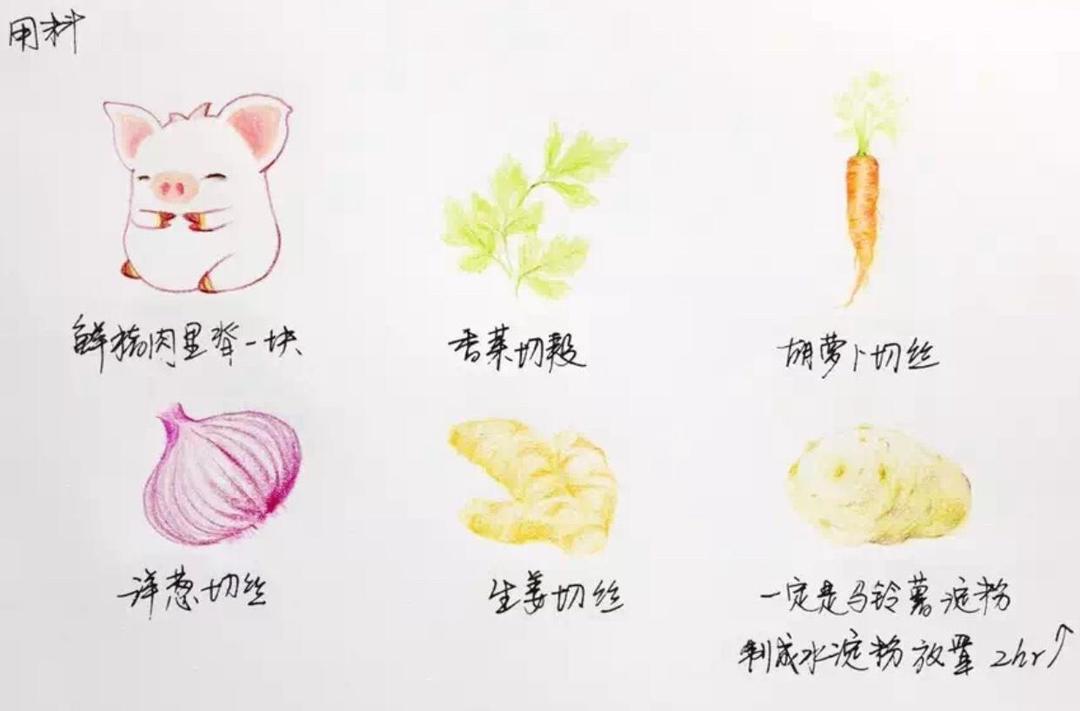 用料
鲜猪肉里脊一块
香菜切段
胡萝卜切丝
洋葱切丝
生姜切丝
一定是马铃薯淀粉
制成水淀粉放置 2hr↑